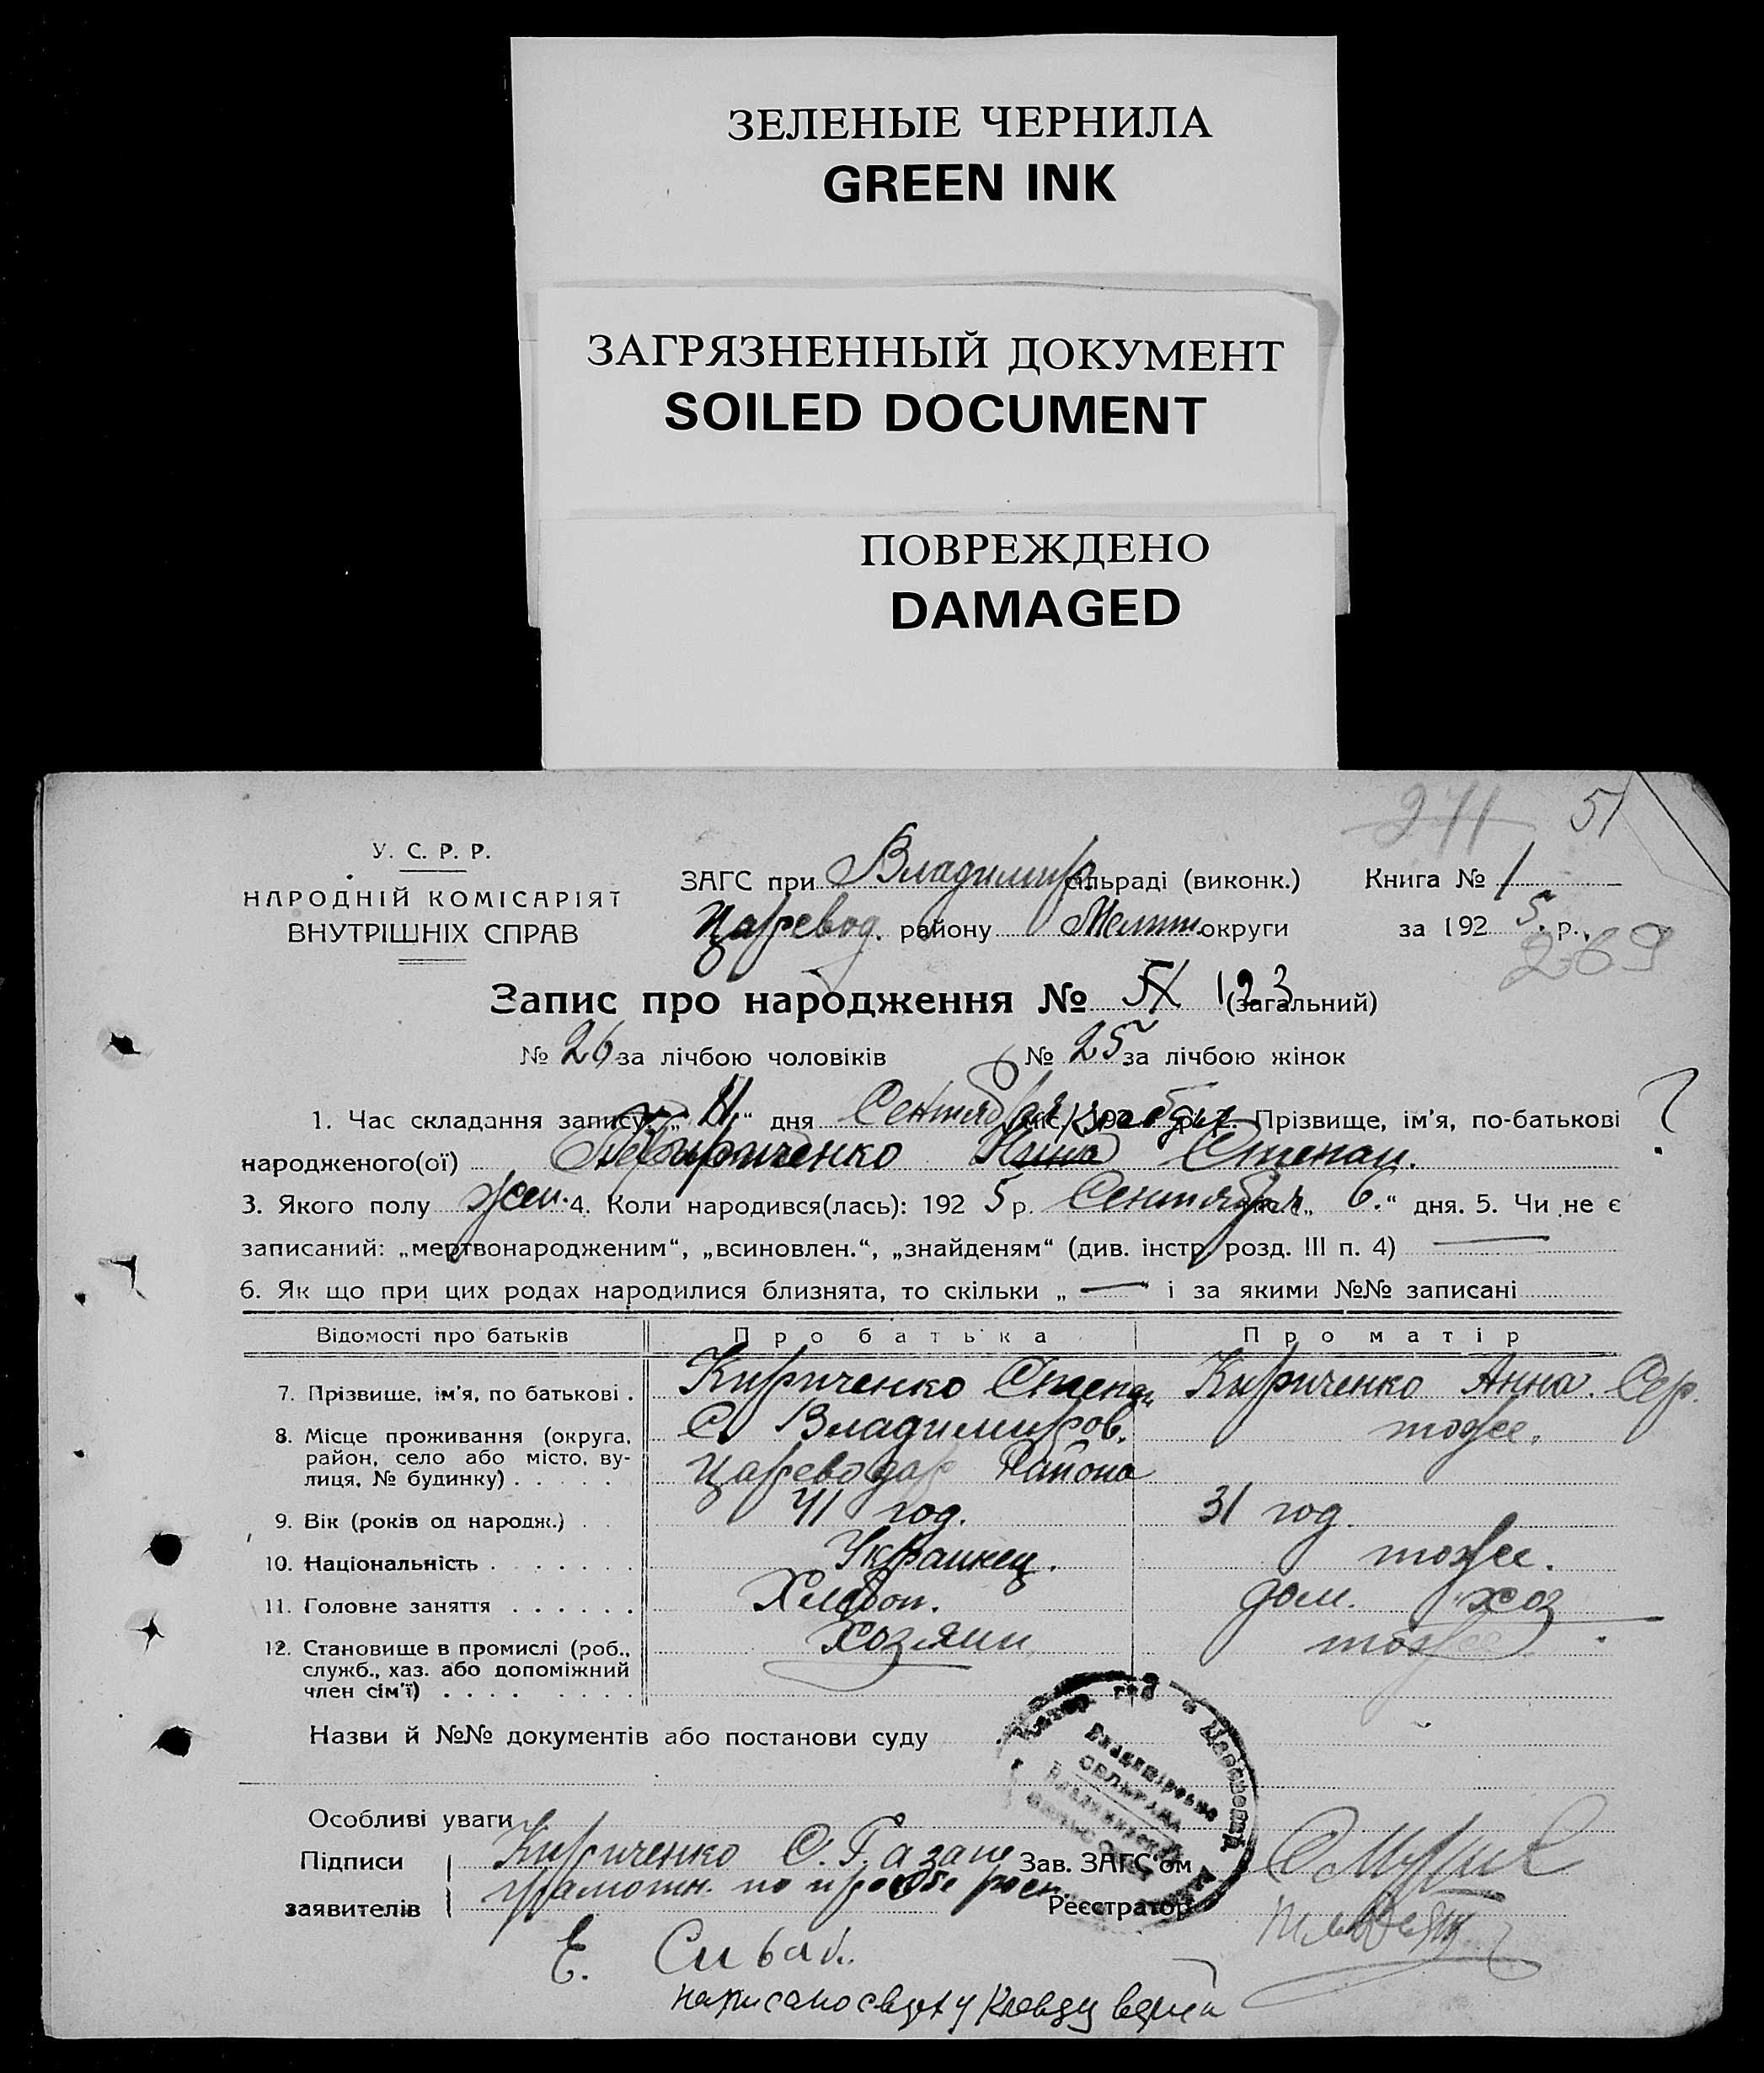 ЗЕЛЕНЫЕ ЧЕРНИЛА
GREEN INK
ЗАГРЯЗНЕННЫЙ ДОКУМЕНТ
SOILED DOCUMENT
ПОВРЕЖДЕНО
DAMAGED
271 51
У. С. Р. Р.
НАРОДНІЙ КОМІСАРІЯТ
ВНУТРІШНІХ СПРАВ
ЗАГС при Владимир. сільраді (виконк.) Книга № 1
Царевод. району Мелит округи за 192 5 р.
269
Запис про народження № 51 123 (загальний)
№ 26 за лічбою чоловіків № 25 за лічбою жінок
1. Час складання запису: „ 11 “ дня Сентября міс. 192 р. 2. Прізвище, ім'я, по-батькові ?
народженого(ої) Кириченко Нина Степан.
3. Якого полу жен. 4. Коли народився(лась): 192 5 р. Сентября міс. „ 6. “ дня. 5. Чи не є
записаний: „мертвонародженим“, „всиновлен.“, „знайденям“ (див. інстр. розд. III п. 4) —
6. Як що при цих родах народилися близнята, то скільки „ — і за якими №№ записані
Відомості про батьків Про батька Про матір
7. Прізвище, ім'я, по батькові . Кириченко Степан Кириченко Анна. Сер.
8. Місце проживання (округа, район, село або місто, вулиця, № будинку) . . . . С. Владимиров. тоже.
Цареводар Района
9. Вік (років од народж.) . . 41 год. 31 год.
10. Національність . . . . . . . Украинец. тоже.
11. Головне заняття . . . . . . Хлебоп. дом. хоз
12. Становище в промислі (роб., служб., хаз. або допоміжний член сім'ї) . . . . . . . . Хозяин тоже
Назви й №№ документів або постанови суду
Особливі уваги
Підписи заявителів
Кириченко С. Г. а за не
грамотн. по просбе росп.
Е. Сивак
Зав. ЗАГС'ом
Реєстратор
написано